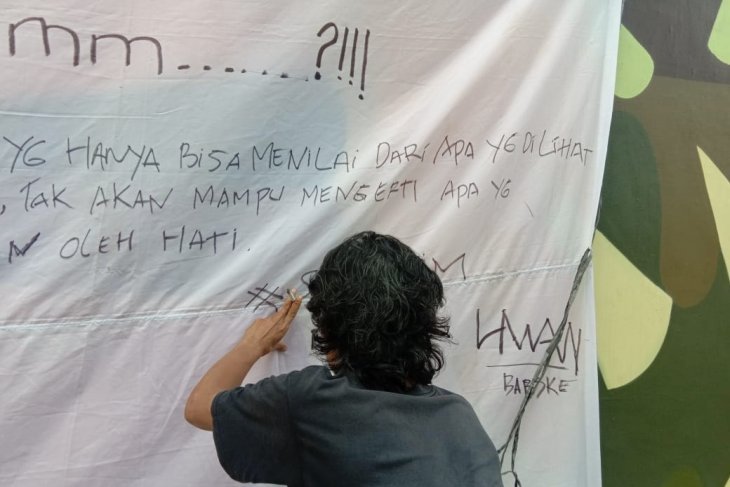 mm........?!!!
YG HANYA BISA MENILAI DARI APA YG DILIHAT
, TAK AKAN MAMPU MENGERTI APA YG
N OLEH HATI.
#